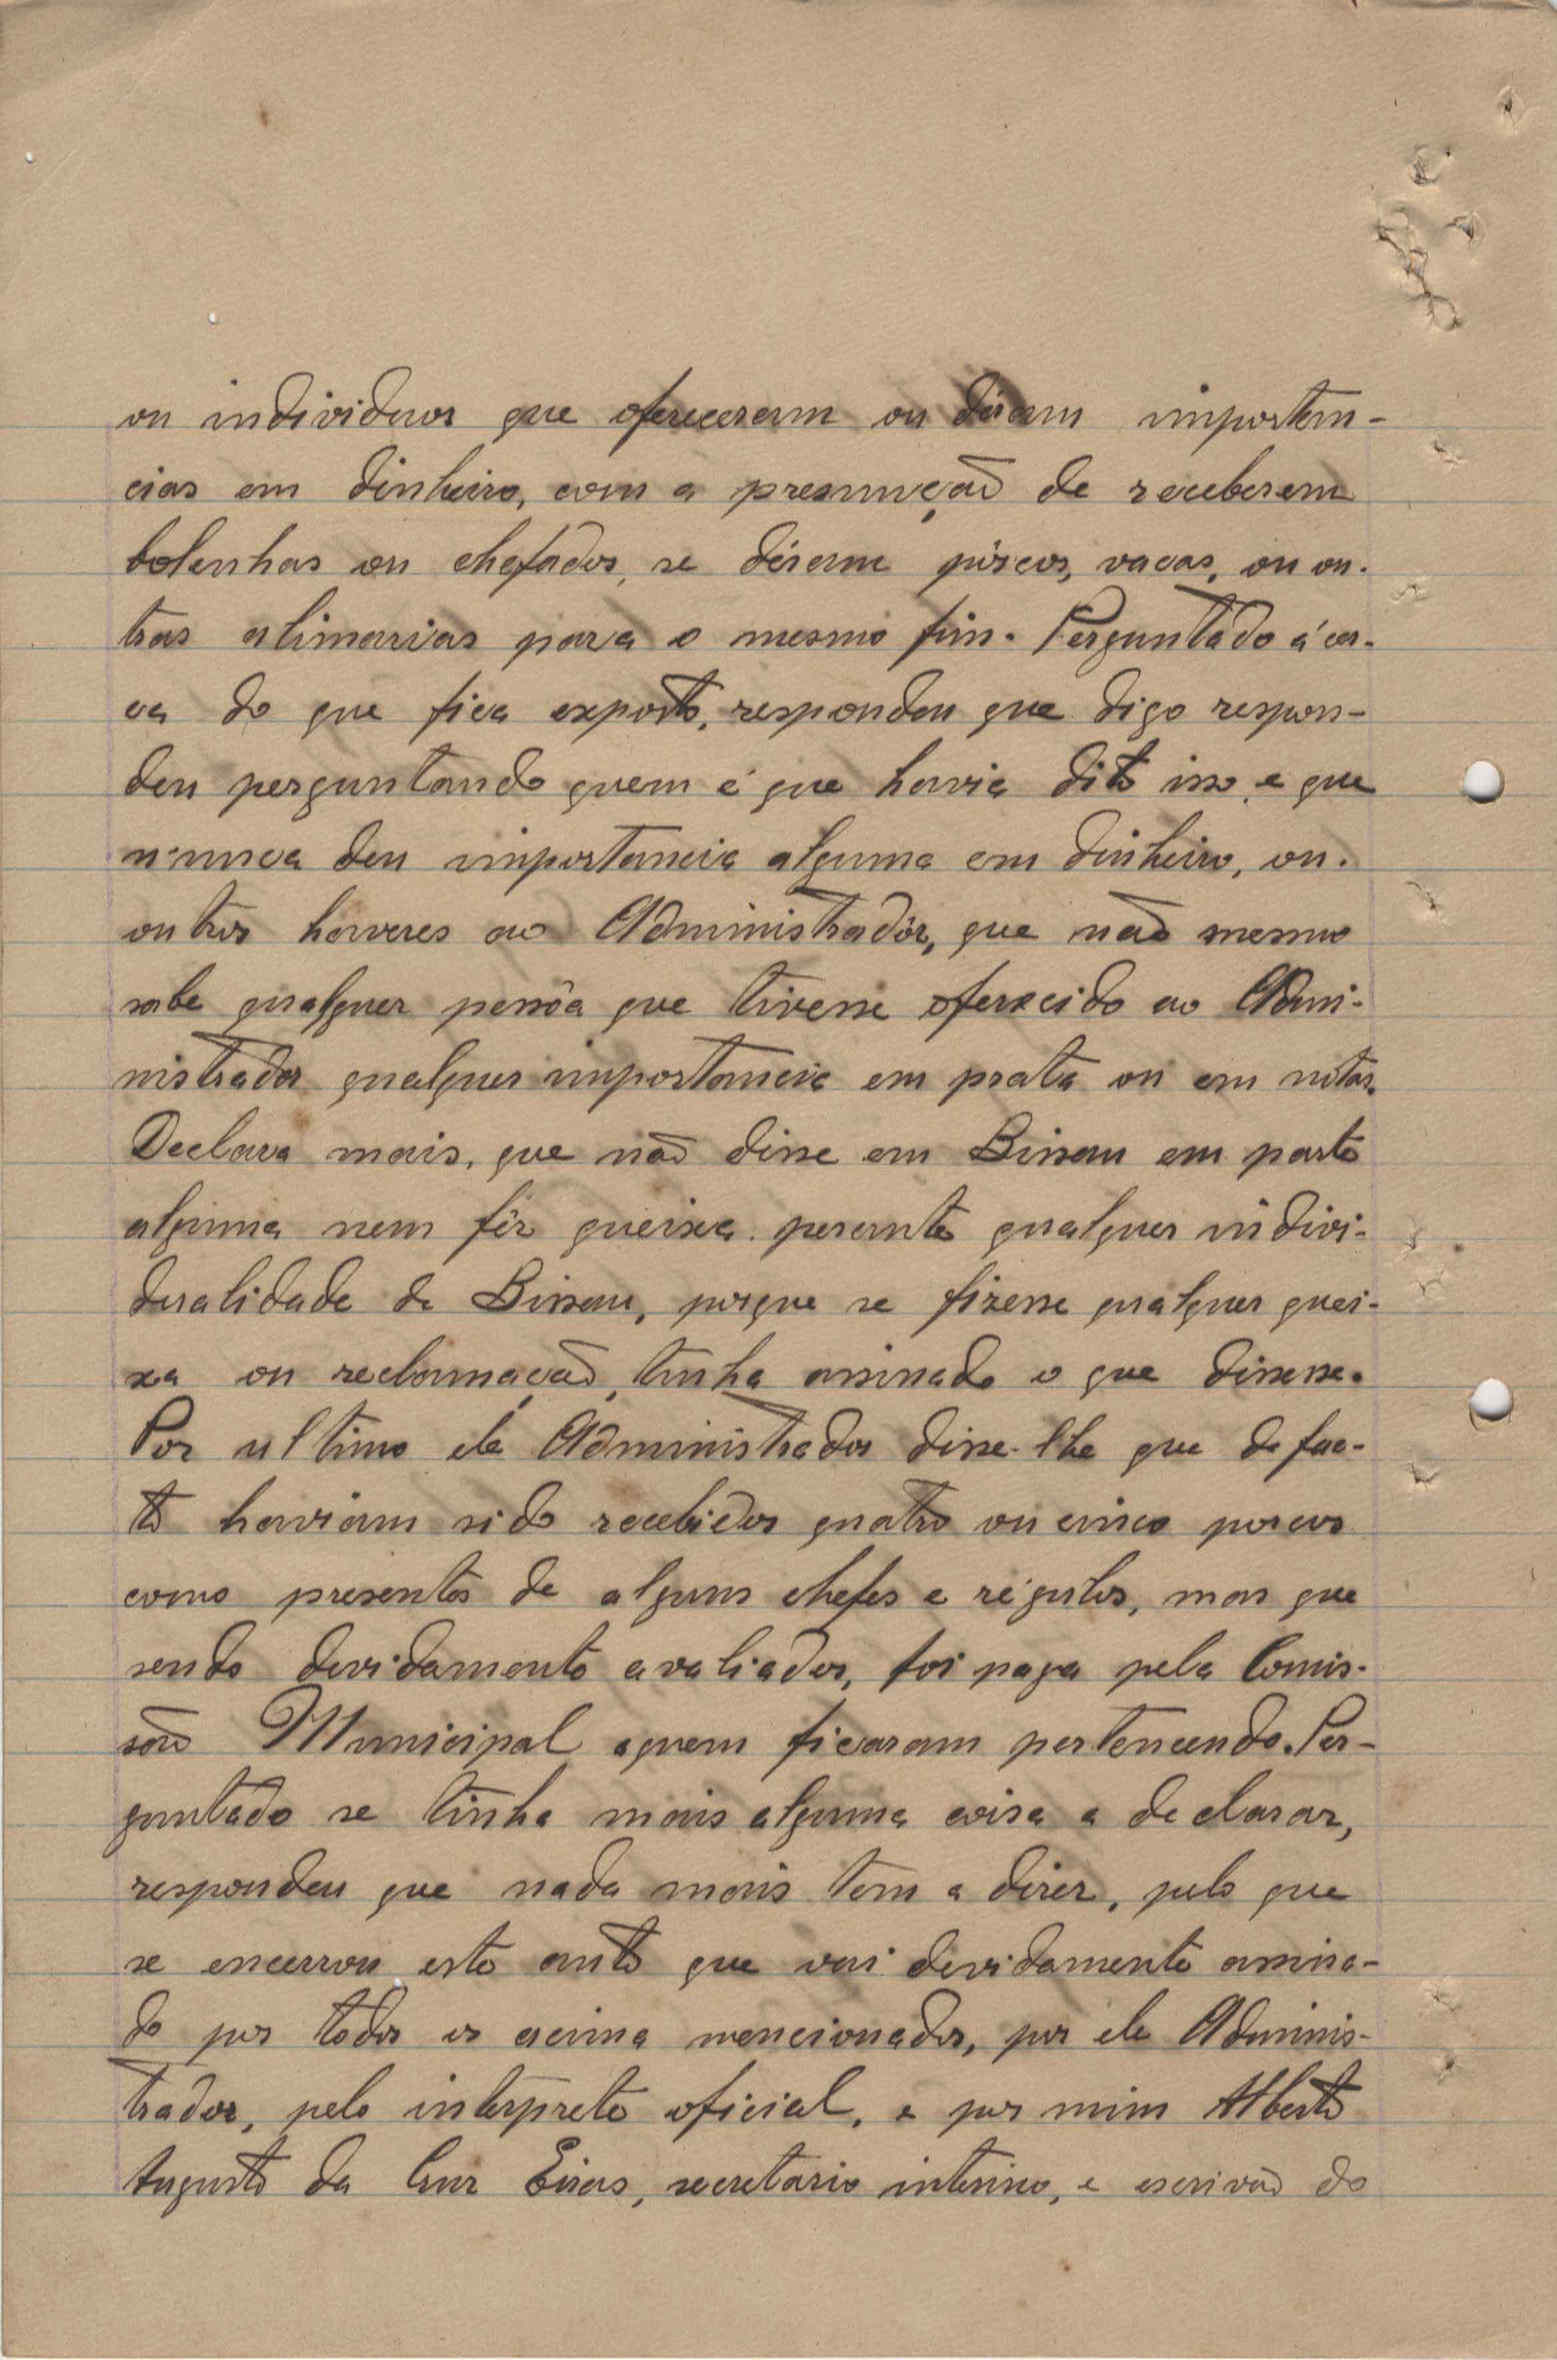 ou individuos que ofereceram ou déram importan-
cias em dinheiro, com a presunção de receberem
bolanhas ou chefados, se déram pórcos, vacas, ou ou-
tras alimarias para o mesmo fim. Perguntado á cer-
ca do que fica exposto, respondeu que digo respon-
deu perguntando quem é que havia dito isso, e que
nunca deu importancia alguma em dinheiro, ou
outros haveres ao Administradôr, que não mesmo
sabe qualquer pessôa que tivesse oferecido ao Admi-
nistrador qualquer importancia em prata ou em notas.
Declara mais, que não disse em Bissau em parte
alguma nem fêz queixa perante qualquer indivi-
dualidade de Bissau, porque se fizesse qualquer quei-
xa ou reclamação, tinha assinado o que dissesse.
Por ultimo ele Administrador disse-lhe que de fac-
to haviam sido recebidos quatro ou cinco porcos
como presentes de alguns chefes e régulos, mas que
sendo devidamente avaliados, foi paga pela Comis-
são Municipal aquem ficaram pertencendo. Per-
guntado se tinha mais alguma coisa a declarar,
respondeu que nada mais tem a dizer, pelo que
se encerrou este auto que vai devidamente assina-
do por todos os acima mencionados, por ele Adminis-
trador, pelo interprete oficial, e por mim Alberto
Augusto da Cruz Eiras, secretario interino, e escrivão do